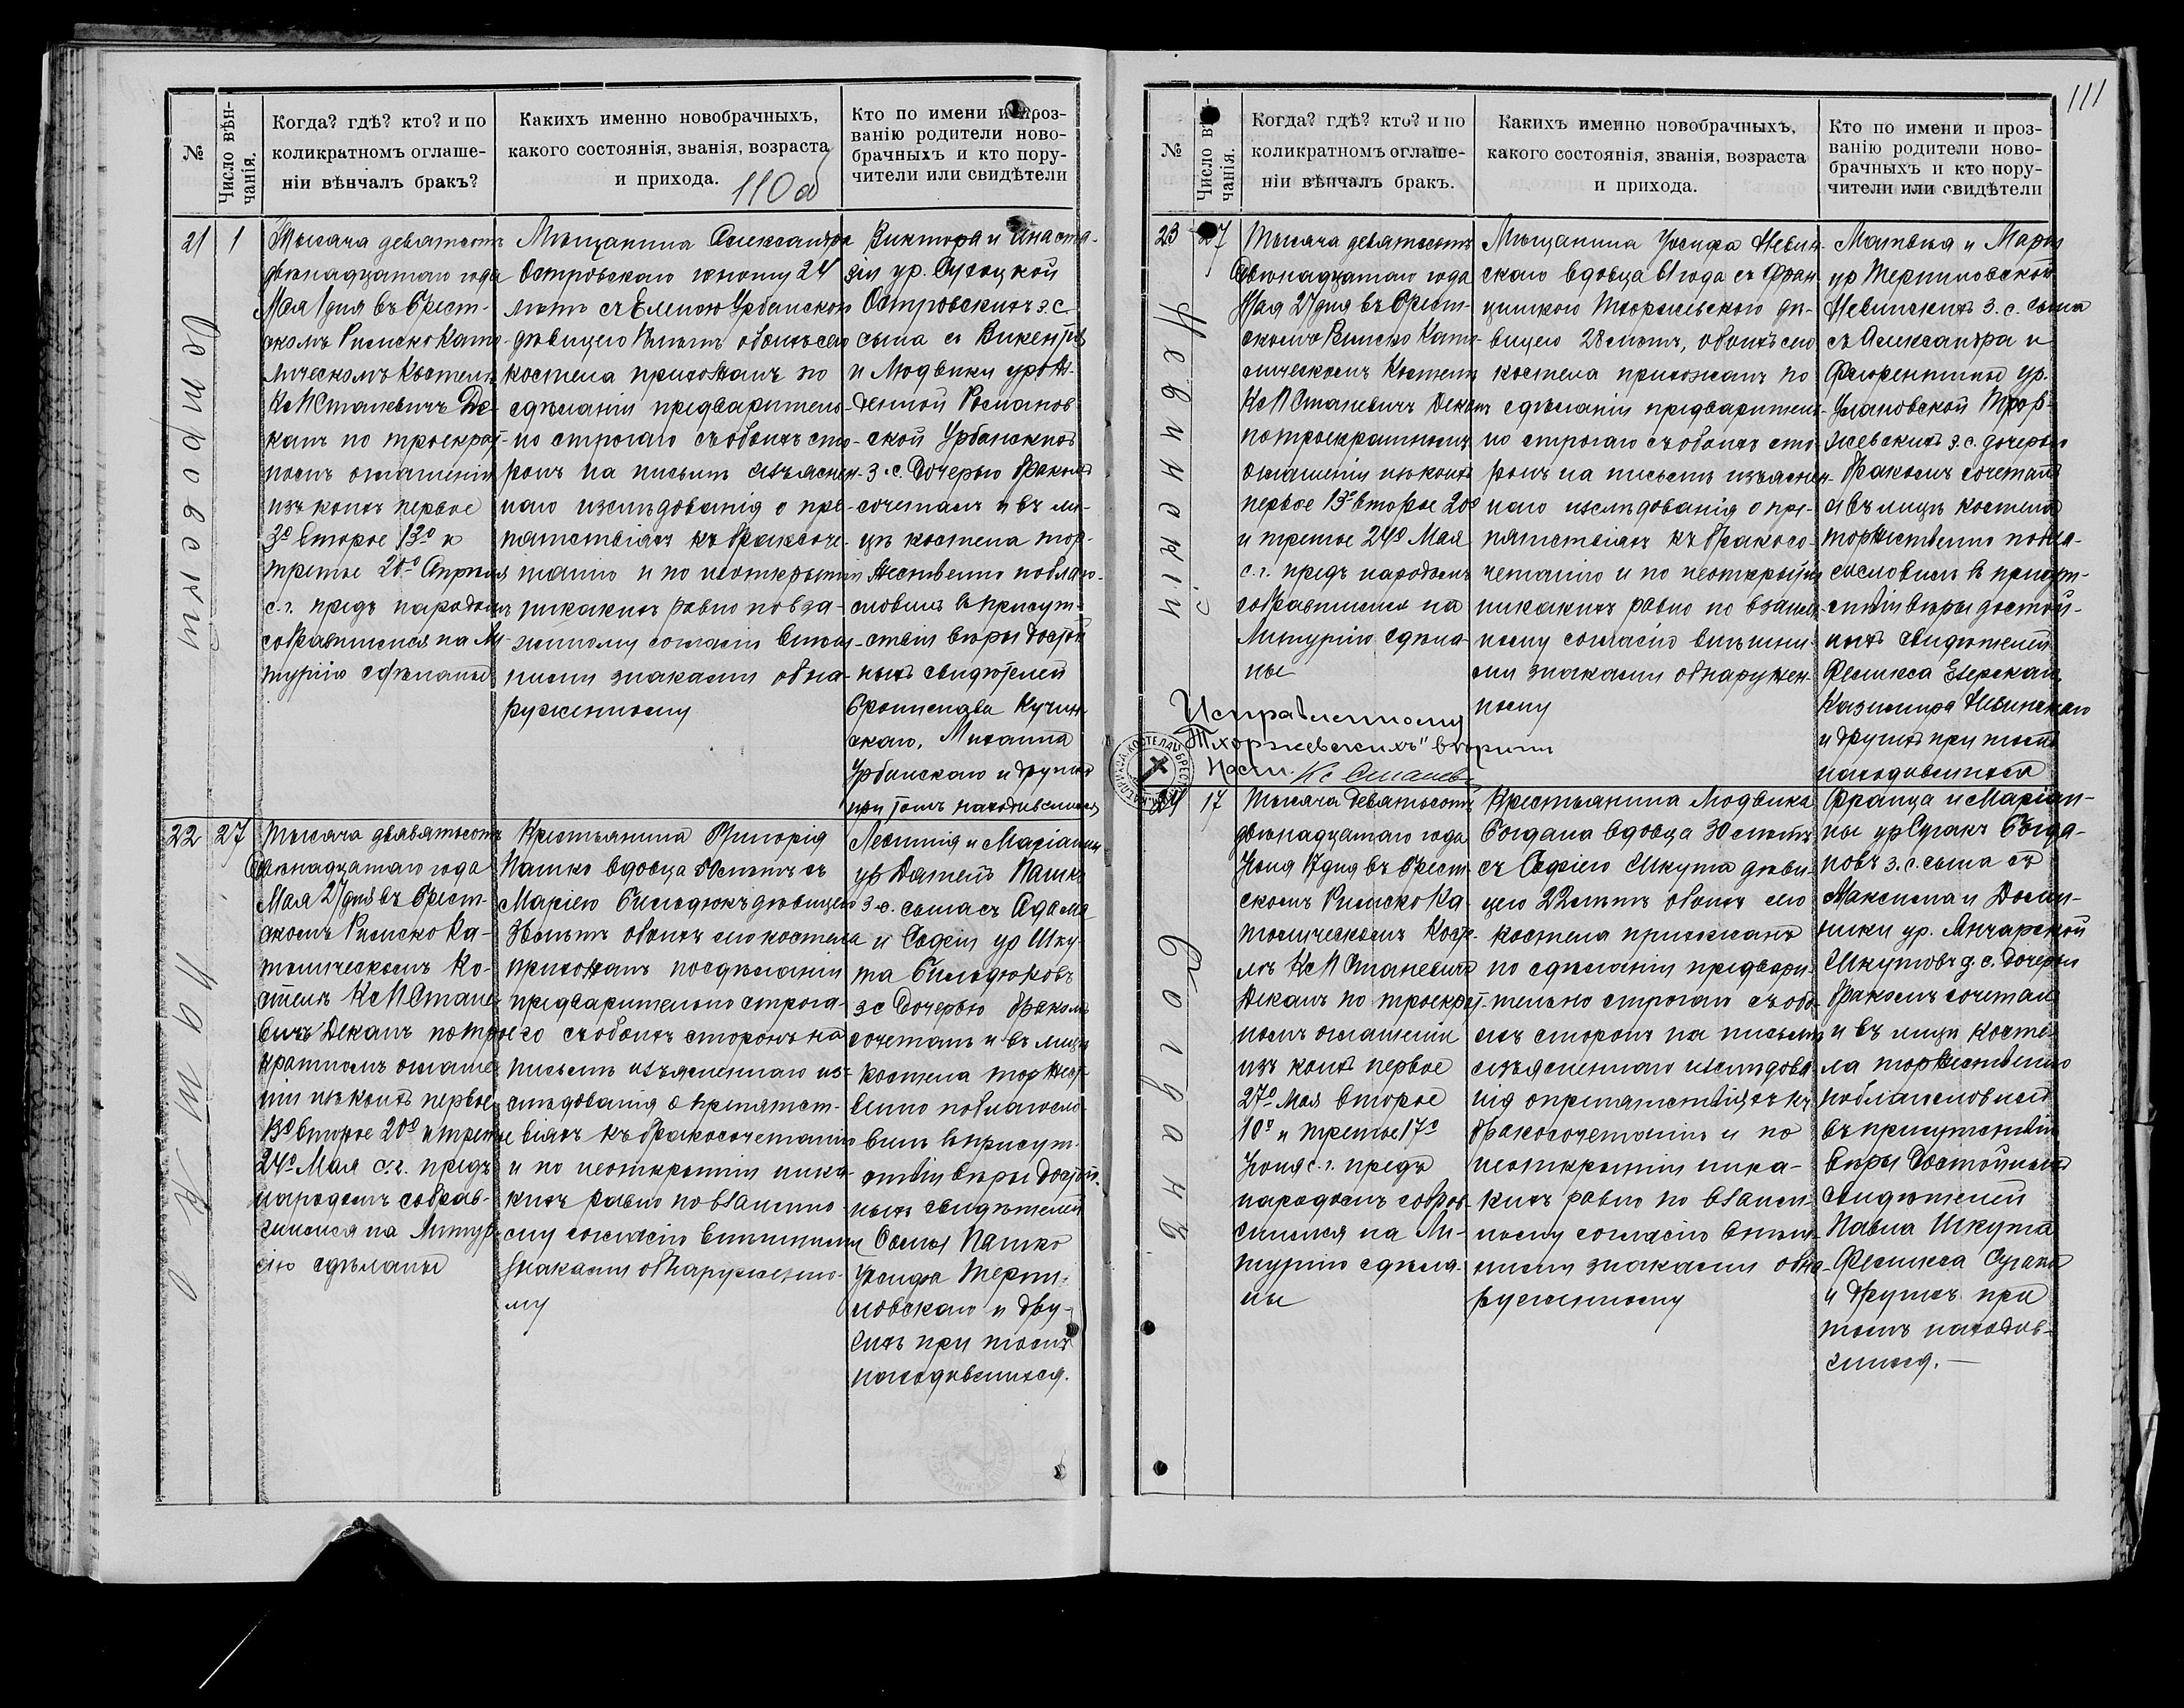 №
Число вѣн-
чанія.
Когда? гдѣ? кто? и по
коликратномъ оглаше-
ніи вѣнчалъ бракъ?
Какихъ именно новобрачныхъ,
какого состоянія, званія, возраста
и прихода.
110 об
Кто по имени и проз-
ванію родители ново-
брачныхъ и кто пору-
чители или свидѣтели
21
1
Островскій
Тысяча девятьсотъ
двѣнадцатаго года
Мая 1 дня въ Брест-
скомъ Римско Като-
лическомъ Костелѣ
Кс М Станевичъ Де-
канъ по троекрат-
номъ оглашеніи
изъ коихъ первое
3º второе 13º и
третье 20º Апрѣля
с. г. предъ народомъ
собравшимся на Ли-
тургію сдѣланы
Мѣщанина Александра
Островскаго юношу 24
лѣтъ съ Еленою Урбанскою
дѣвицею лѣтъ обоихъ сего
костела прихожанъ по
сдѣланіи предваритель-
но строгаго съ обоихъ сто-
ронъ на письмѣ изъяснен-
наго изслѣдованія о пре-
пятствіяхъ къ бракосоче-
танію и по неоткрытіи
никакихъ равно по вза-
имному согласію внѣш-
ними знаками обна-
руженному
Виктора и Анаста-
зіи ур. Сусоцкой
Островскихъ з. с.
сына съ Викентія
и Людвики урож-
денной Романов
ской Урбанскихъ
з. с. дочерью бракомъ
сочеталъ и въ ли-
цѣ костела тор-
жественно благо-
словилъ въ присут-
ствіи вѣры достой
ныхъ свидѣтелей
Бронислава Кучин-
скаго, Михаила
Урбанскаго и другихъ
при томъ находившихся
22
27
Пашко
Тысяча девятьсотъ
двѣнадцатаго года
Мая 27 дня въ Брест-
скомъ Римско Ка-
толическомъ Ко-
стелѣ Кс М Стане-
вичъ Деканъ по трое
кратномъ оглаше-
ніи изъ коихъ первое
13º второе 20º и третье
24º Мая с. г. предъ
народомъ собрав-
шимся на Литур-
гію сдѣланы
Крестьянина Григорія
Пашко вдовца 50 лѣтъ съ
Маріею Бильдюкъ дѣвицею
38 лѣтъ обоихъ сего костела
прихожанъ по сдѣланіи
предварительно строга-
го съ обоихъ сторонъ на
письмѣ изъясненнаго из-
слѣдованія о препятст-
віяхъ къ бракосочетанію
и по неоткрытіи ника-
кихъ равно по взаимно
му согласію внѣшними
знаками обнаруженно-
му
Леонтія и Маріанны
ур Пашко
з. с. сына съ Адама
и Софіи ур Шку-
та Бильдюковъ
зс дочерью бракомъ
сочеталъ и въ лицѣ
костела торжест-
венно благосло-
вилъ въ присут-
ствіи вѣры достой-
ныхъ свидѣтелей
Осипа Пашко
Іосифа Терпи-
ловскаго и дру-
гихъ при томъ
находившихся.
111
№
Число вѣ
чанія.
Когда? гдѣ? кто? и по
коликратномъ оглаше-
ніи вѣнчалъ бракъ.
Какихъ именно новобрачныхъ,
какого состоянія, званія, возраста
и прихода.
Кто по имени и проз-
ванію родители ново-
брачныхъ и кто пору-
чители или свидѣтели
23
27
Невинскій
Тысяча девятьсотъ
двѣнадцатаго года
Мая 27 дня въ Брест-
скомъ Римско Като-
лическомъ Костелѣ
Кс М Станевичъ Деканъ
по троекратномъ
оглашеніи изъ коихъ
первое 13º второе 20º
и третье 24º Мая
с. г. предъ народомъ
собравшимся на
Литургію сдѣла-
ны
Мѣщанина Іосифа Невин-
скаго вдовца 61 года съ Фран
цишкою Тхоржевскою дѣ-
вицею 28 лѣтъ, обоихъ сего
костела прихожанъ по
сдѣланіи предваритель-
но строгаго съ обоихъ сто
ронъ на письмѣ изъяснен-
наго изслѣдованія о пре-
пятствіяхъ къ бракосо-
четанію и по неоткрытіи
никакихъ равно по взаим-
ному согласію внѣшни-
ми знаками обнаружен-
ному
Матвѣя и Маріи
ур Терпиловской
Невинскихъ з. с. сына
съ Александра и
Флорентины ур.
Улановской Тхор-
жевскихъ з. с. дочерью
бракомъ сочеталъ
и въ лицѣ костела
торжественно побла-
гословилъ въ присут-
ствіи вѣры достой-
ныхъ свидѣтелей
Феликса
Казимира Невинскаго
и другихъ при томъ
находившихся
Исправленному
"Тхоржевскихъ" вѣрить
Насто. Кс Станев
24
17
Богданъ
Тысяча девятьсотъ
двѣнадцатаго года
Іюня 17 дня въ Брест-
скомъ Римско Ка-
толическомъ Косте-
лѣ Кс М Станевичъ
Деканъ по троекрат-
номъ оглашеніи
изъ коихъ первое
27º Мая второе
10º и третье 17º
Іюня с. г. предъ
народомъ собрав-
шимся на Ли-
тургію сдѣла-
ны
Крестьянина Людвика
Богдана вдовца 30 лѣтъ
съ Софіею Шкута дѣви-
цею 22 лѣтъ обоихъ сего
костела прихожанъ
по сдѣланіи предвари-
тельно строгаго съ обо-
ихъ сторонъ на письмѣ
изъясненнаго изслѣдова
нія о препятствіяхъ къ
бракосочетанію и по
неоткрытіи ника-
кихъ равно по взаим-
ному согласію внѣш-
ними знаками обна-
руженному
Франца и Маріан-
ны ур Сугакъ Богда-
новъ з. с. сына съ
Максима и Доми-
ники ур. Янчарской
Шкутовъ з. с. дочерью
бракомъ сочеталъ
и въ лицѣ косте-
ла торжественно
поблагословилъ
въ присутствіи
вѣры достойныхъ
свидѣтелей
Павла Шкута
Феликса Сугака
и другихъ при
томъ находив-
шихся.—